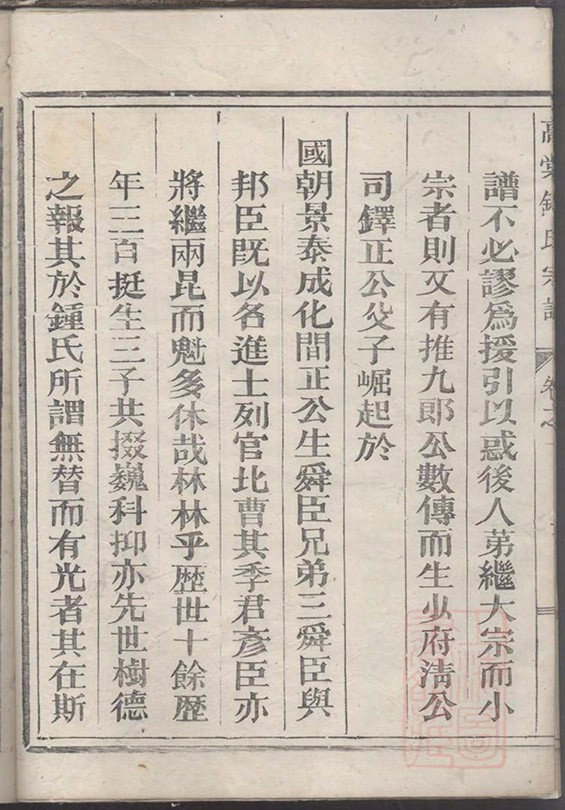 譜不必謬爲援引以惑後人第繼大宗而小
宗者則又有推九郎公數傳而生少府淸公
司鐸正公父子崛起於
國朝景泰成化間正公生舜臣兄弟三舜臣與
邦臣既以名進士列官比曹其季君彥臣亦
將繼兩昆而魁多休哉林林乎歴世十餘歴
年三百挺生三子共掇巍科抑亦先世樹德
之報其於鍾氏所謂無替而有光者其在斯